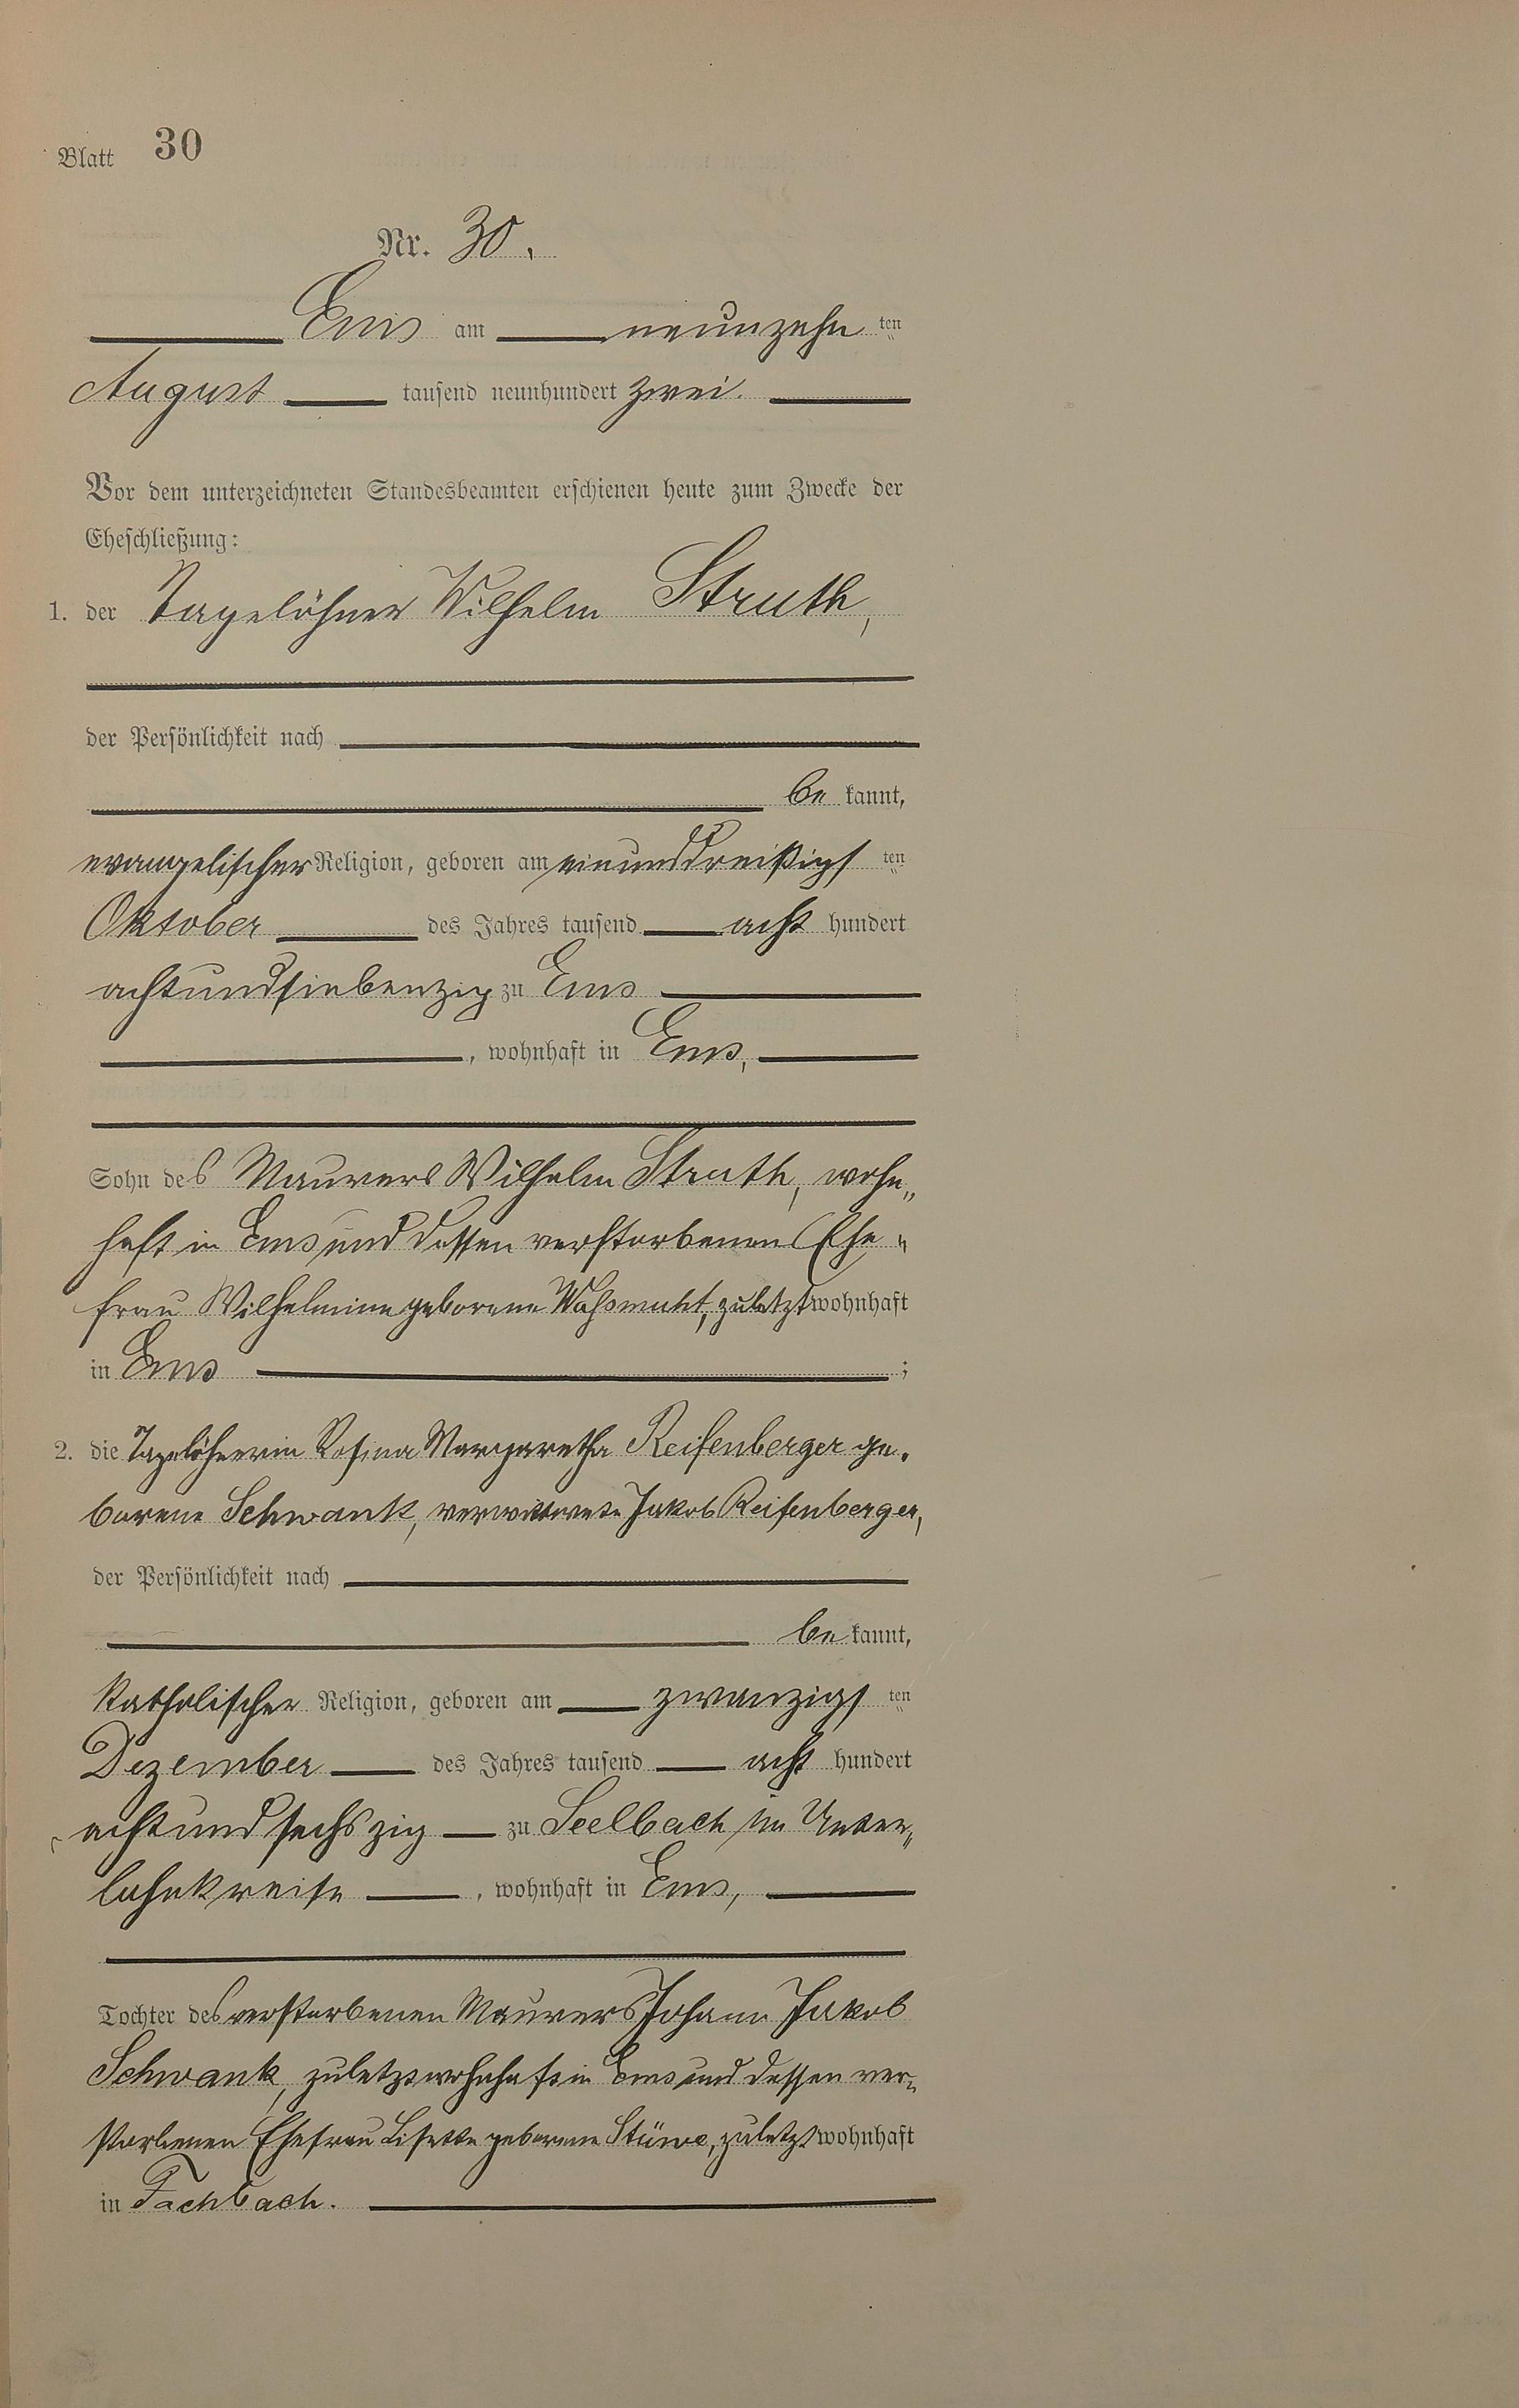 Blatt 30
Nr. 30.
Ems am neunzehnten
August tausend neunhundert zwei.
Vor dem unterzeichneten Standesbeamten erschienen heute zum Zwecke der
Eheschließung:
1. der Tagelöhner Wilhelm Struth,
der Persönlichkeit nach
be kannt,
evangelischer Religion, geboren am einunddreißigsten
Oktober des Jahres tausend acht hundert
achtundsiebenzig zu Ems
, wohnhaft in Ems,
Sohn des Maurers Wilhelm Struth, wohn„
haft in Ems und dessen verstorbenen Ehe„
frau Wilhelmine geborene zuletzt wohnhaft
in Ems ;
2. die Tagelöhnerin Rosina Margaretha Reifenberger ge„
borene Schwank, verwittwete Jakob Reifenberger,
der Persönlichkeit nach
be kannt,
katholischer Religion, geboren am zwanzigsten
Dezember des Jahres tausend acht hundert
achtundsechszig zu Seelbach im Unter„
lahnkreise , wohnhaft in Ems,
Tochter des verstorbenen Maurers Johann Jakob
Schwank, zuletzt wohnhaft in Ems und dessen ver„
storbenen Ehefrau Lisette geborene Stüwe, zuletzt wohnhaft
in Fachbach.